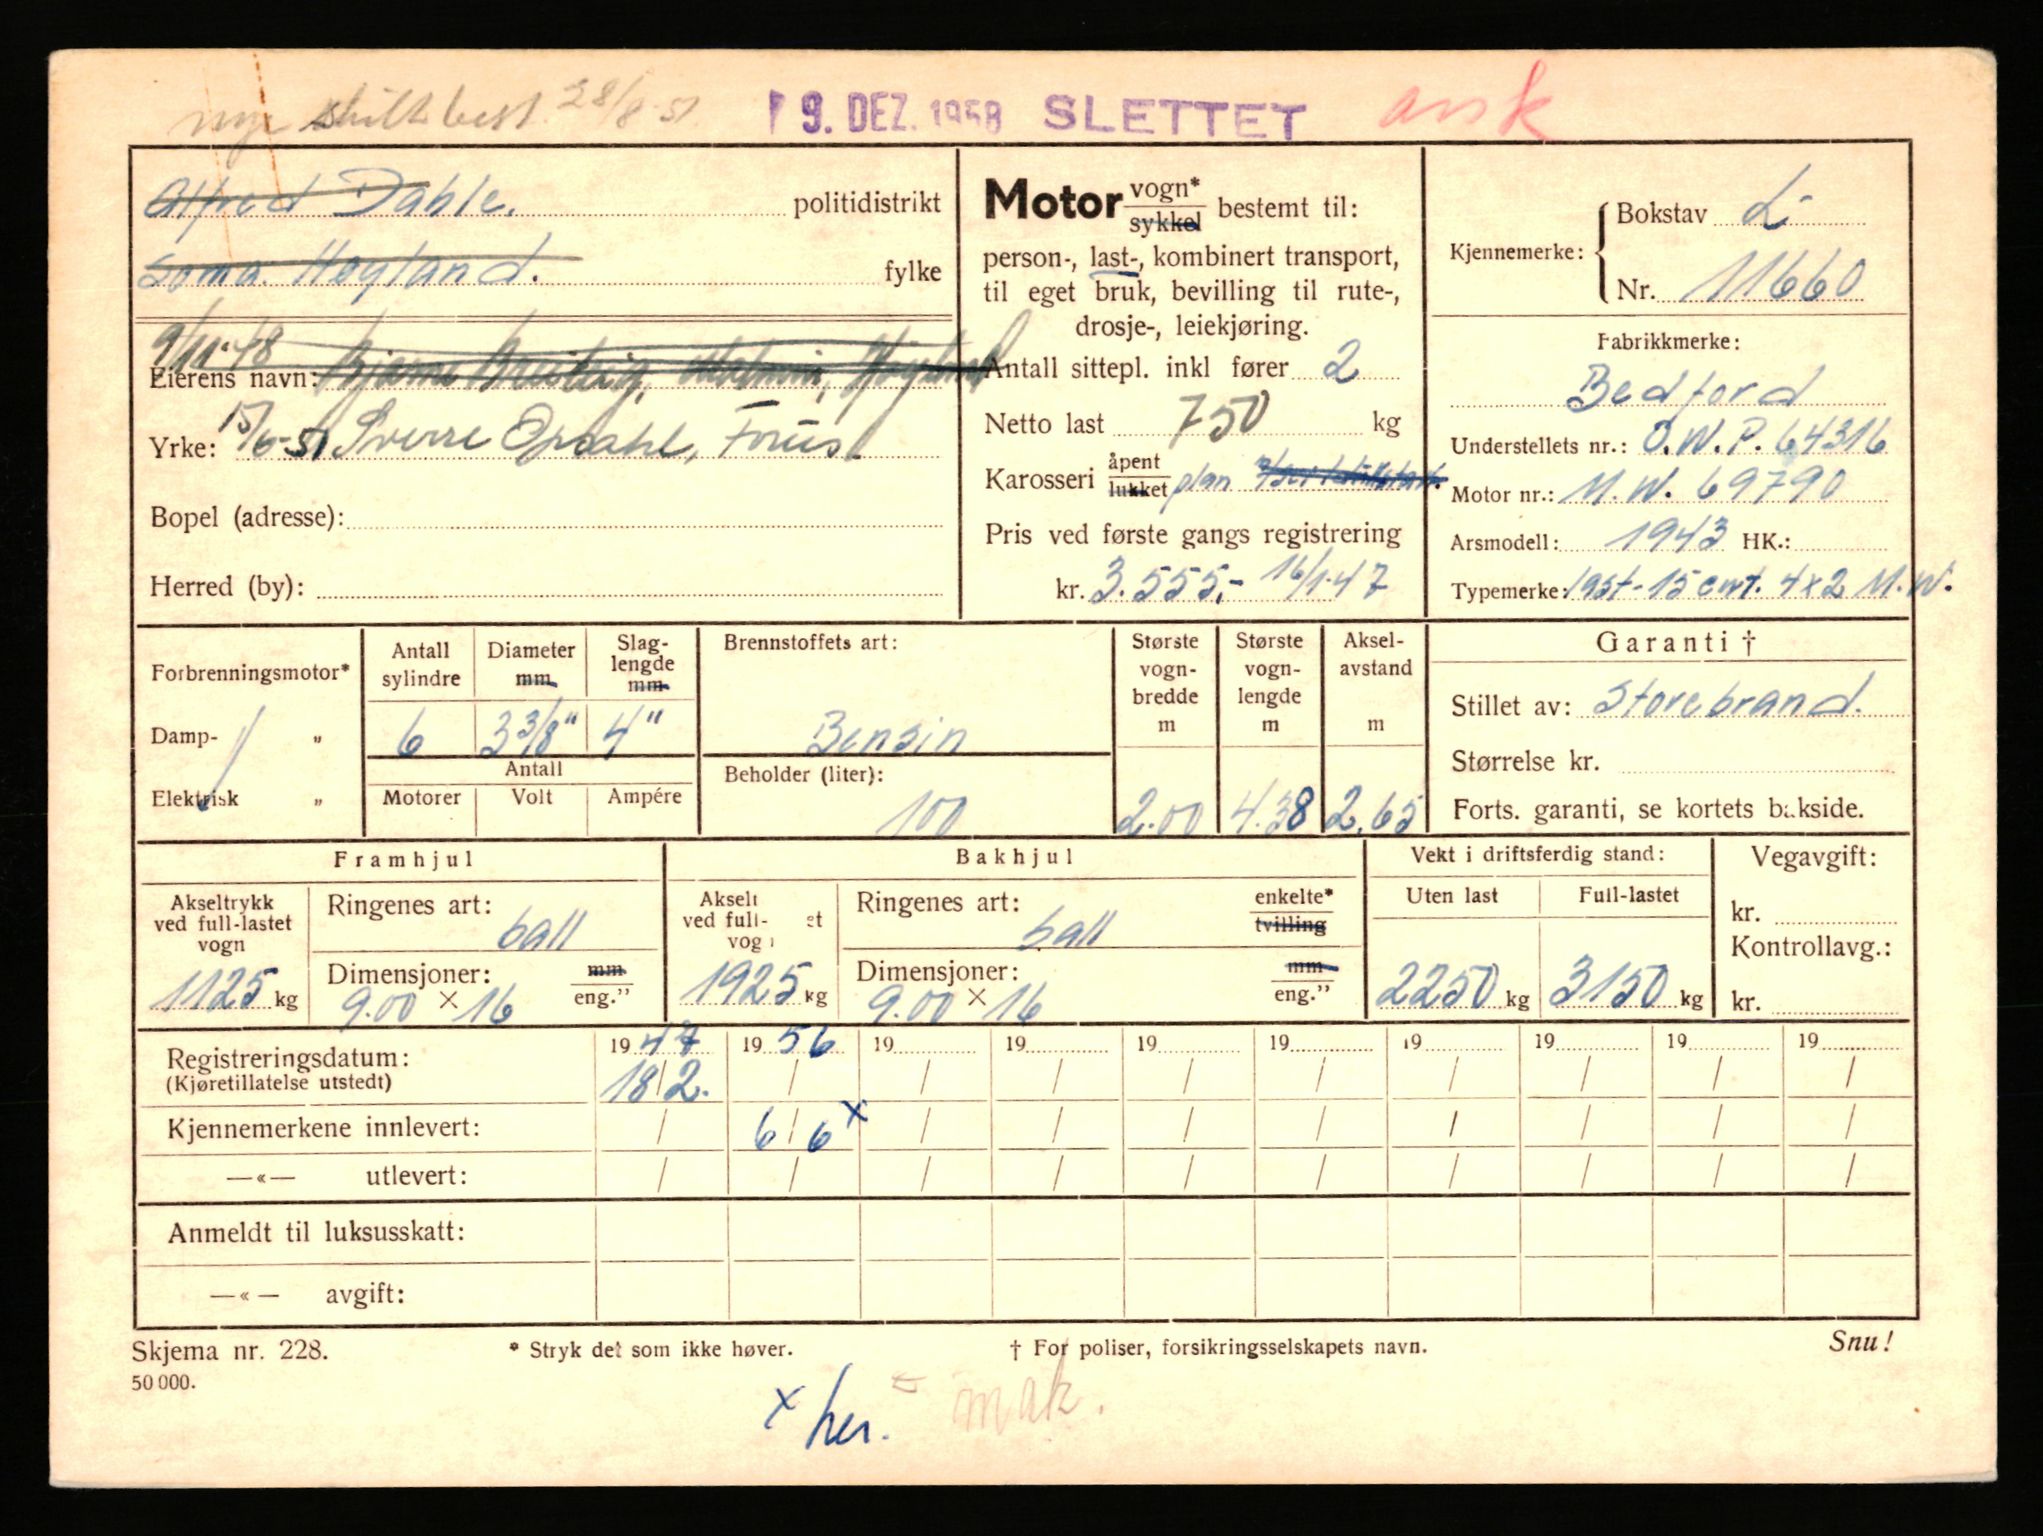 nye skilt best. 28/8-51 9. DEZ. 1958 SLETTET
Alfred Dahle. politidistrikt
Soma. Høyland. fylke
9/11-48
Eierens navn: Bjarne
Yrke: 15/6-51 Sverre Opdahl, Forus
Bopel (adresse):
Herred (by):
Motor vogn* sykkel bestemt til:
person-, last-, kombinert transport,
til eget bruk, bevilling til rute-,
drosje-, leiekjøring.
Antall sittepl. inkl fører 2
Netto last 750 kg
Karosseri åpent lukket plan
Pris ved første gangs registrering
kr. 3.555,- 16/1-47
Kjennemerke: Bokstav L-
Nr. 11660
Fabrikkmerke:
Bedford
Understellets nr.: O.W.P. 64316
Motor nr.: M.W. 69790
Arsmodell: 1943 HK.:
Typemerke: last-15 cwt. 4x2 M.W.
Forbrenningsmotor*
Damp- „
Elektrisk „
Antall sylindre
Diameter mm
Slag-lengde mm
6 3 3/8" 4"
Antall
Motorer Volt Ampére
Brennstoffets art:
Bensin
Beholder (liter):
100
Største vogn-bredde m
2.00
Største vogn-lengde m
4.38
Aksel-avstand m
2.65
Garanti †
Stillet av: Storebrand.
Størrelse kr.
Forts. garanti, se kortets bakside.
Framhjul
Akseltrykk ved full-lastet vogn
1125 kg
Ringenes art: ball
Dimensjoner: mm eng.”
9.00 x 16
Bakhjul
Akselt ved full- et vog
1925 kg
Ringenes art: ball enkelte* tvilling
Dimensjoner: mm eng.”
9.00 x 16
Vekt i driftsferdig stand:
Uten last Full-lastet
2250 kg 3150 kg
Vegavgift:
kr.
Kontrollavg.:
kr.
Registreringsdatum: 1947 1956 19 19 19 19 19 19 19 19
(Kjøretillatelse utstedt) 18/2. / / / / / / / / /
Kjennemerkene innlevert: / 6/6 x / / / / / / / /
—«— utlevert: / / / / / / / / / /
Anmeldt til luksusskatt:
—«— avgift:
Skjema nr. 228. * Stryk det som ikke høver. † For poliser, forsikringsselskapets navn. Snu!
50 000.
x her. mak.